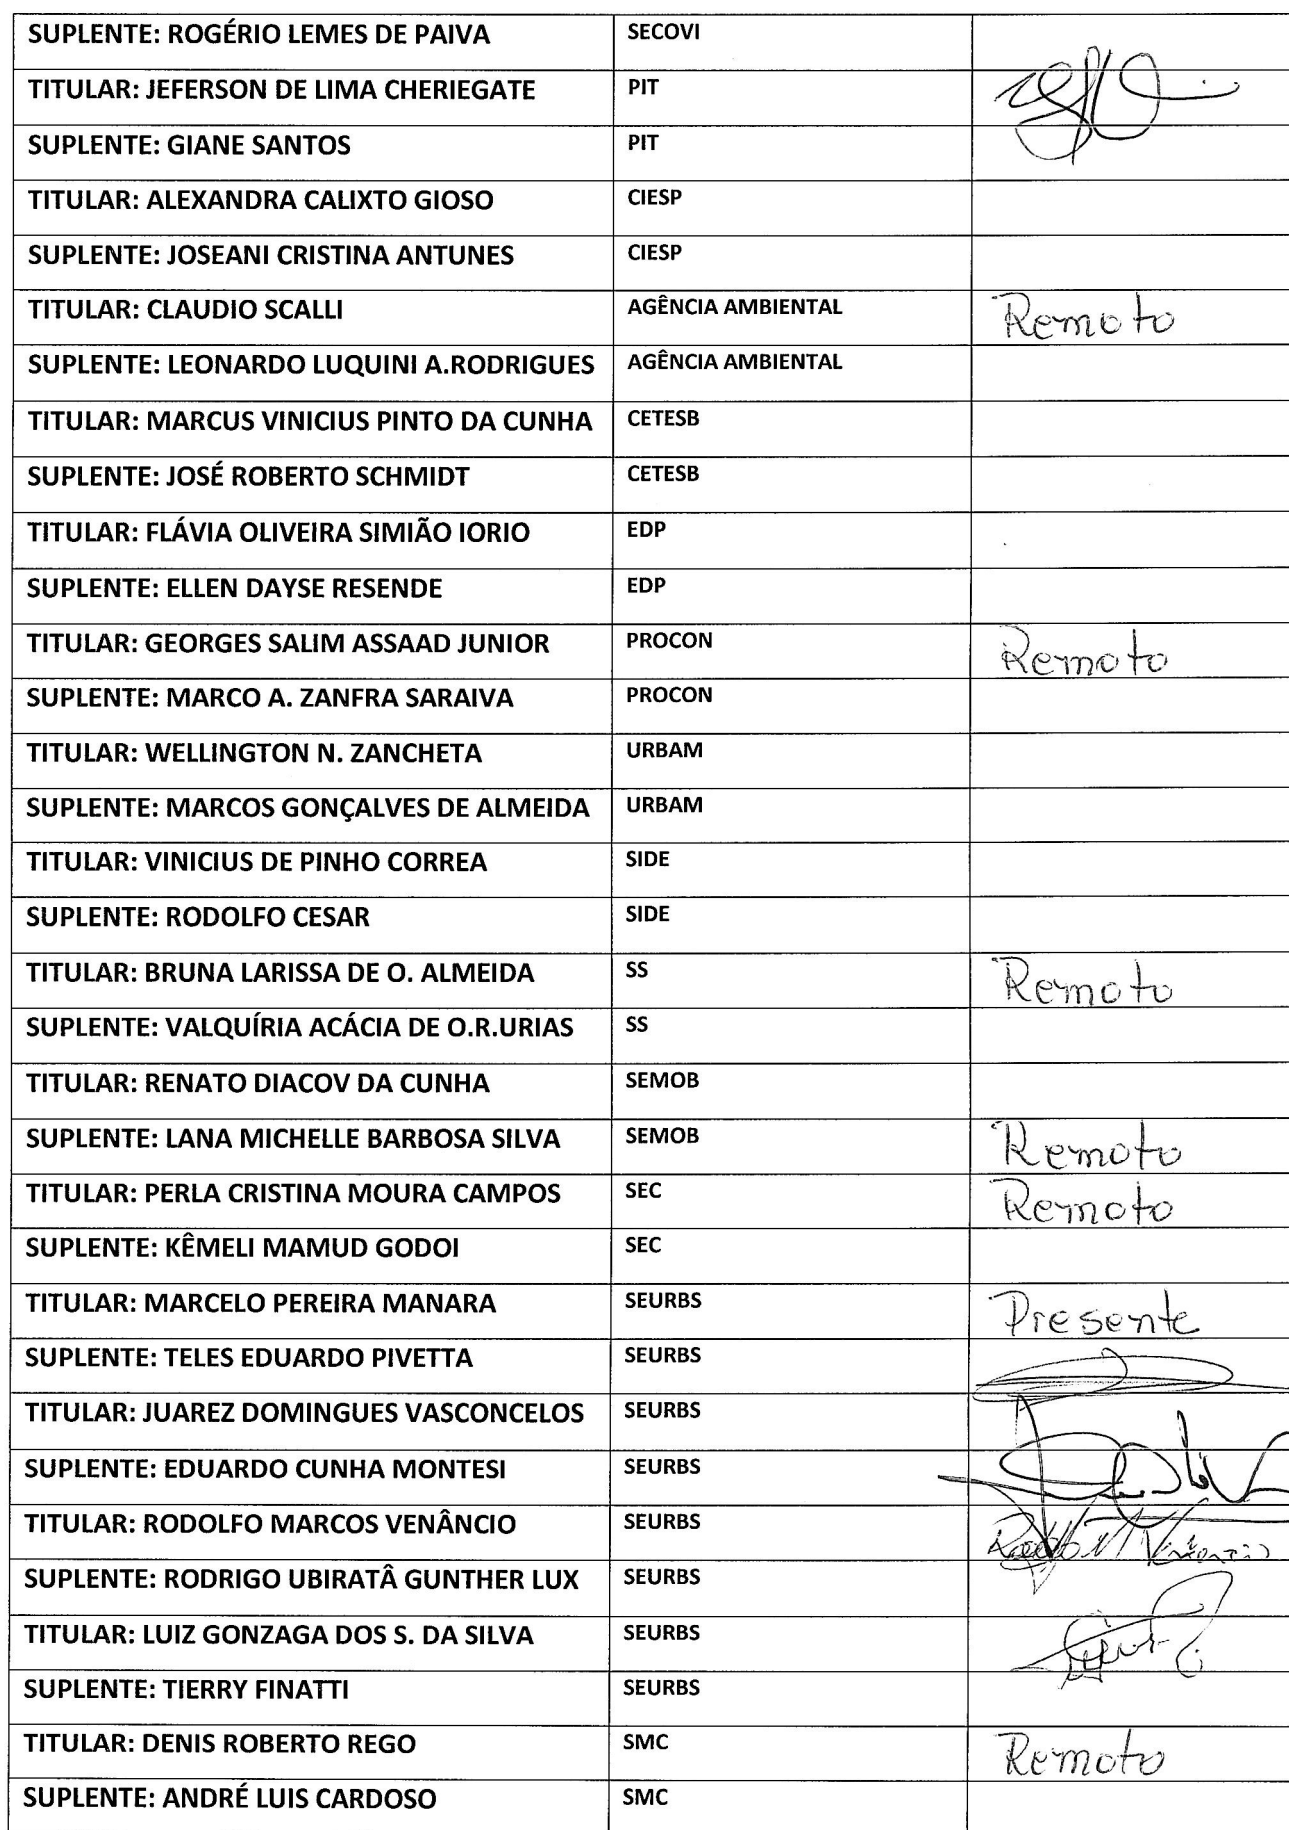 SUPLENTE: ROGÉRIO LEMES DE PAIVA SECOVI
TITULAR: JEFERSON DE LIMA CHERIEGATE PIT
SUPLENTE: GIANE SANTOS PIT
TITULAR: ALEXANDRA CALIXTO GIOSO CIESP
SUPLENTE: JOSEANI CRISTINA ANTUNES CIESP
TITULAR: CLAUDIO SCALLI AGÊNCIA AMBIENTAL Remoto
SUPLENTE: LEONARDO LUQUINI A.RODRIGUES AGÊNCIA AMBIENTAL
TITULAR: MARCUS VINICIUS PINTO DA CUNHA CETESB
SUPLENTE: JOSÉ ROBERTO SCHMIDT CETESB
TITULAR: FLÁVIA OLIVEIRA SIMIÃO IORIO EDP
SUPLENTE: ELLEN DAYSE RESENDE EDP
TITULAR: GEORGES SALIM ASSAAD JUNIOR PROCON Remoto
SUPLENTE: MARCO A. ZANFRA SARAIVA PROCON
TITULAR: WELLINGTON N. ZANCHETA URBAM
SUPLENTE: MARCOS GONÇALVES DE ALMEIDA URBAM
TITULAR: VINICIUS DE PINHO CORREA SIDE
SUPLENTE: RODOLFO CESAR SIDE
TITULAR: BRUNA LARISSA DE O. ALMEIDA SS Remoto
SUPLENTE: VALQUÍRIA ACÁCIA DE O.R.URIAS SS
TITULAR: RENATO DIACOV DA CUNHA SEMOB
SUPLENTE: LANA MICHELLE BARBOSA SILVA SEMOB Remoto
TITULAR: PERLA CRISTINA MOURA CAMPOS SEC Remoto
SUPLENTE: KÊMELI MAMUD GODOI SEC
TITULAR: MARCELO PEREIRA MANARA SEURBS Presente
SUPLENTE: TELES EDUARDO PIVETTA SEURBS
TITULAR: JUAREZ DOMINGUES VASCONCELOS SEURBS
SUPLENTE: EDUARDO CUNHA MONTESI SEURBS
TITULAR: RODOLFO MARCOS VENÂNCIO SEURBS
SUPLENTE: RODRIGO UBIRATÂ GUNTHER LUX SEURBS
TITULAR: LUIZ GONZAGA DOS S. DA SILVA SEURBS
SUPLENTE: TIERRY FINATTI SEURBS
TITULAR: DENIS ROBERTO REGO SMC Remoto
SUPLENTE: ANDRÉ LUIS CARDOSO SMC